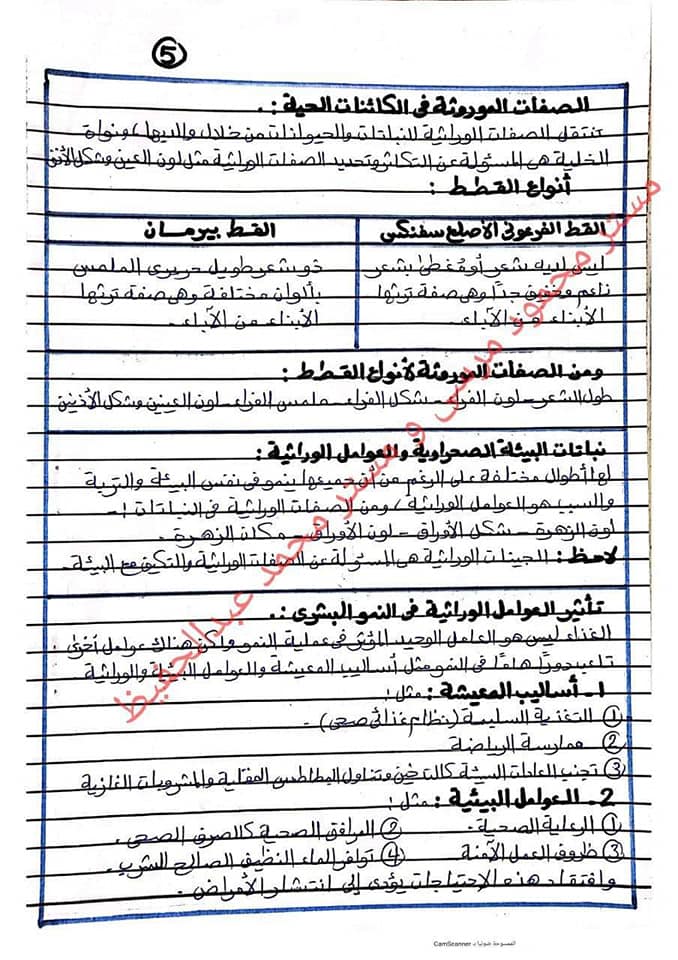 5
الصفات الموروثة فى الكائنات الحية :.
تنتقل الصفات الوراثية للنباتات والحيوانات من خلال والديها، ونواة
الخلية هى المسئولة عن التكاثر وتحديد الصفات الوراثية مثل لون العين وشكل الأنف
أنواع القطط :
القط الفرعونى الأصلع سفنكس
ليس لديه شعر أو مُغطى بشعر
ناعم وخفيف جدًا وهى صفة ترثها
الأبناء من الآباء.
القط بيرمان
ذو شعر طويل حريرى الملمس
بألوان مختلفة وهى صفة ترثها
الأبناء من الآباء.
ومن الصفات الموروثة لأنواع القطط :
طول الشعر - لون الفراء - شكل الفراء - ملمس الفراء - لون العينين وشكل الأذنين
نباتات البيئة الصحراوية والعوامل الوراثية :
لها أطوال مختلفة على الرغم من أن جميعها ينمو فى نفس البيئة والتربة
والسبب هو العوامل الوراثية، ومن الصفات الوراثية فى النباتات :-
لون الزهرة - شكل الأوراق - لون الأوراق - مكان الزهرة.
لاحظ : الجينات الوراثية هى المسئولة عن الصفات الوراثية والتكيف مع البيئة.
تأثير العوامل الوراثية فى النمو البشرى :.
الغذاء ليس هو العامل الوحيد المؤثر فى عملية النمو ولكن هناك عوامل أخرى
تلعب دورًا هامًا فى النمو مثل أساليب المعيشة والعوامل البيئة والوراثية
1- أساليب المعيشة : مثل :
① التغذية السليمة (نظام غذائى صحى).
② ممارسة الرياضة
③ تجنب العادات السيئة كالتدخين وتناول البطاطس المقلية والمشروبات الغازية
2- العوامل البيئية : مثل :
① الرعاية الصحية. ② المرافق الصحية كالصرف الصحى.
③ ظروف العمل الآمنة ④ توافر الماء النظيف الصالح للشرب.
وافتقاد هذه الإحتياجات يؤدى إلى انتشار الأمراض.
مستر محمود مرسى و مستر محمد عبدالحفيظ
الممسوحة ضوئيا بـ CamScanner